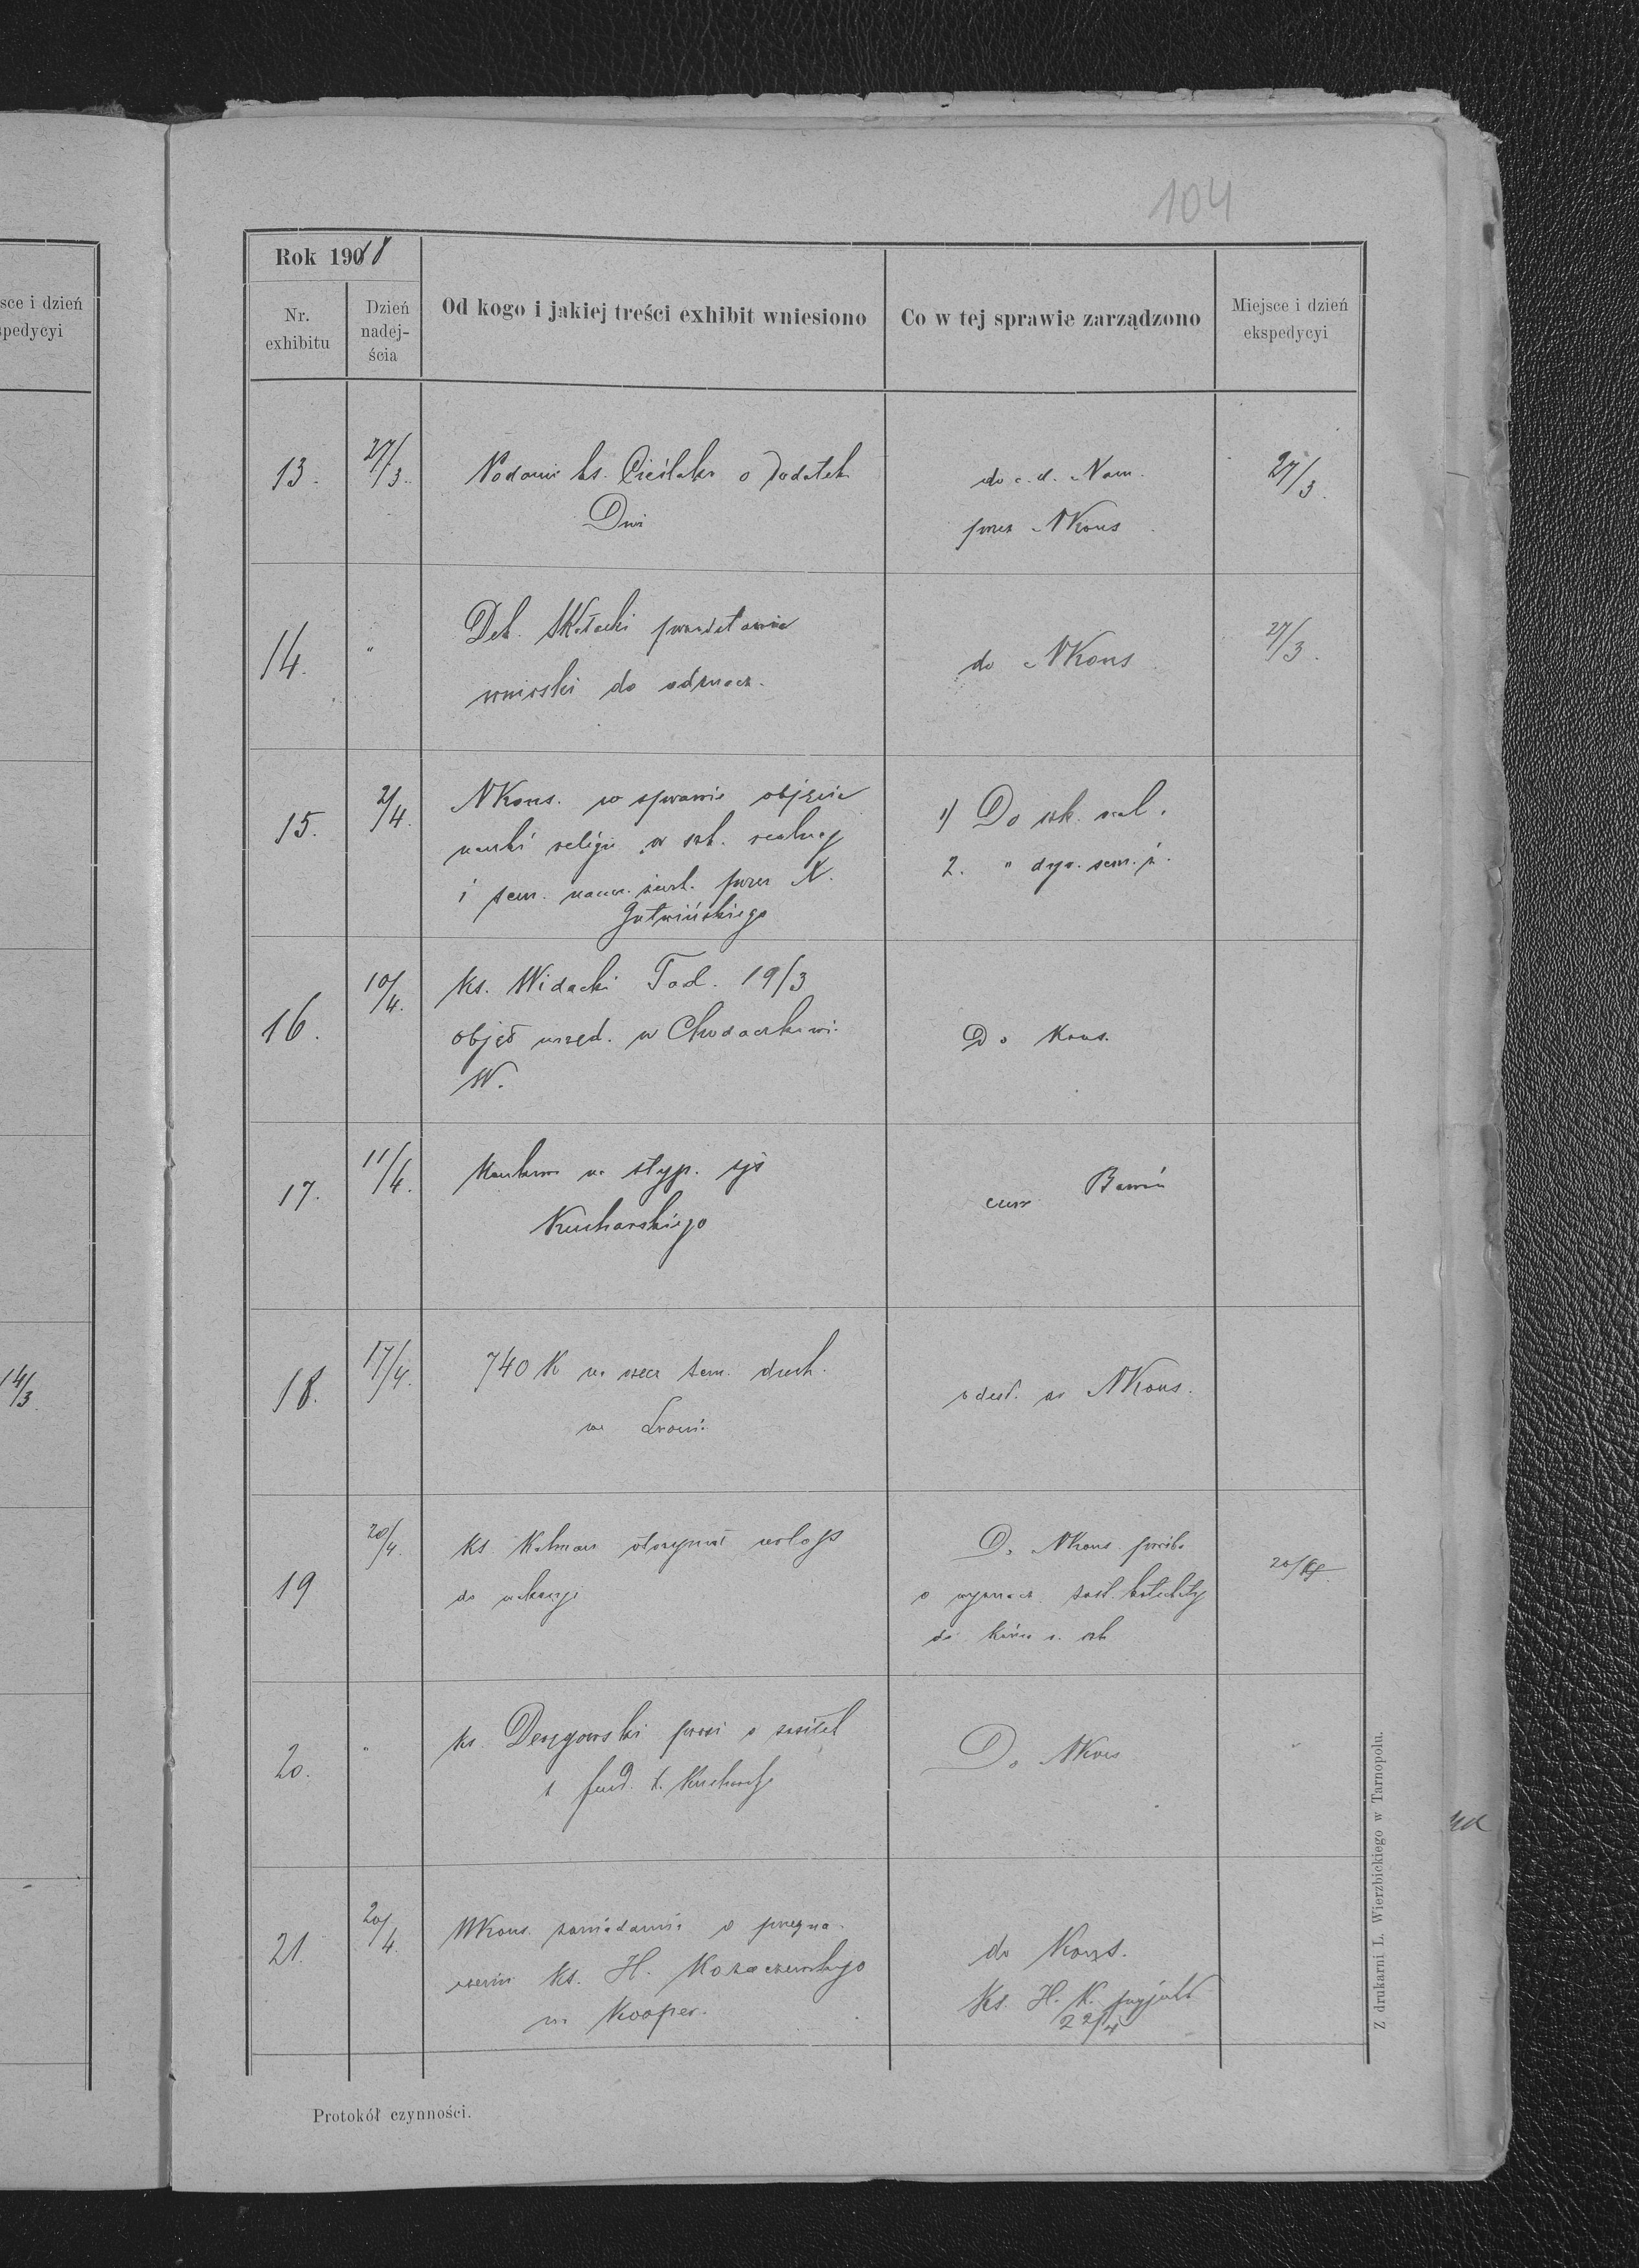 104
sce i dzień
spedycyi
14/3
Rok 1918
Nr.
exhibitu
Dzień
nadej-
ścia
Od kogo i jakiej treści exhibit wniesiono
Co w tej sprawie zarządzono
Miejsce i dzień
ekspedycyi
13. 27/3. Podanie ks. Cieślaka o dodatek do c. d. Nam. 27/3.
przez NKons
14. " Dek. Skałacki przedstawia do NKons 27/3.
wnioski do odznacz.
15. 2/4. NKons. w sprawie objęcia 1) Do szk. real.
nauki religii w szk. realnej 2. " dyr. sem. ż.
i sem. naucz. żeńs. przez X.
Gutwińskiego
16. 10/4. Ks. Widacki Tad. 19/3 Do Kons.
objął urzęd. w Chodaczkowi
W.
17. 11/4. Konkurs na styp. śp
Kucharskiego
18. 17/4. 740 K na rzecz sem. duch. odesł. do NKons.
we Lwowie
19 20/4. Ks. Kalman otrzymał urlop Do NKons. prośba 20/4
do wakacyi o wyznacz. zast. katechety
do końca r. szk
20. " ks. Deręgowski prosi o zasiłek Do NKons "
z fund. ś. Kucharsk
21. 20/4. NKons. zawiadamia o przezna- do Kons.
czeniu Ks. H. Kozaczewskiego Ks. H. K. przyjechał
na Kooper. 22/4
Z drukarni L. Wierzbickiego w Tarnopolu.
Protokół czynności.